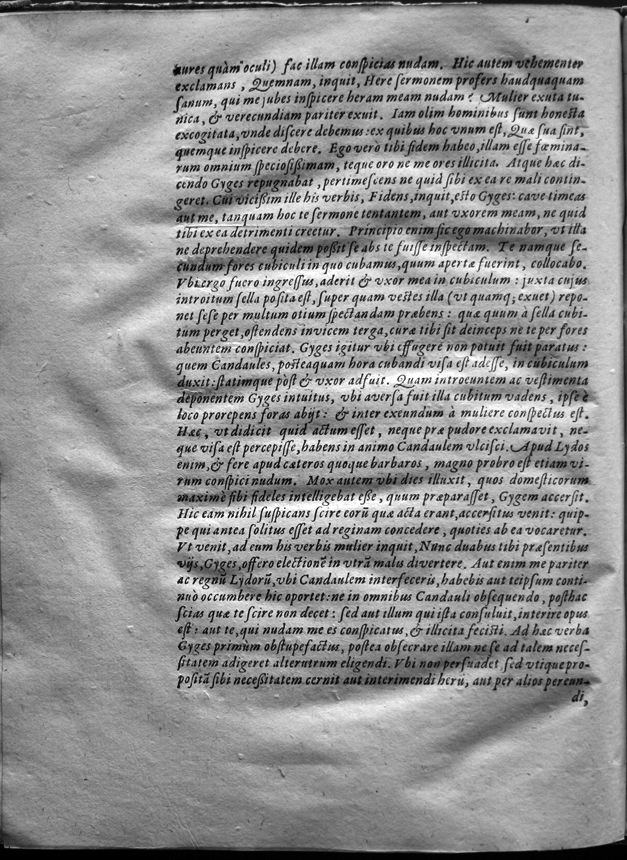 aures quàm oculi) fac illam conſpicias nudam. Hic autem vehementer
exclamans, Quemnam, inquit, Here ſermonem profers haudquaquam
ſanum, qui me jubes inſpicere heram meam nudam? Mulier exuta tu-
nica, & verecundiam pariter exuit. Iam olim hominibus ſunt honeſta
excogitata, vnde diſcere debemus: ex quibus hoc vnum eſt, Quæ ſua ſint,
quemque inſpicere debere. Ego verò tibi fidem habeo, illam eſſe fœmina-
rum omnium ſpecioſiſſimam, teque oro ne me ores illicita. Atque hæc di-
cendo Gyges repugnabat, pertimeſcens ne quid ſibi ex ea re mali contin-
geret. Cui viciſſim ille his verbis, Fidens, inquit, eſto Gyges: cave timeas
aut me, tanquam hoc te ſermone tentantem, aut vxorem meam, ne quid
tibi ex ea detrimenti creetur. Principio enim ſic ego machinabor, vt illa
ne deprehendere quidem poſſit ſe abs te fuiſſe inſpectam. Te namque ſe-
cundum fores cubiculi in quo cubamus, quum apertæ fuerint, collocabo.
Vbi ergo fuero ingreſſus, aderit & vxor mea in cubiculum: juxta cujus
introitum ſella poſita eſt, ſuper quam veſtes illa (vt quamq; exuet) repo-
net ſeſe per multum otium ſpectandam præbens: quæ quum à ſella cubi-
tum perget, oſtendens invicem terga, curæ tibi ſit deinceps ne te per fores
abeuntem conſpiciat. Gyges igitur vbi effugere non potuit fuit paratus:
quem Candaules, poſteaquam hora cubandi viſa eſt adeſſe, in cubiculum
duxit: ſtatimque pòſt & vxor adfuit. Quam introeuntem ac veſtimenta
deponentem Gyges intuitus, vbi averſa fuit illa cubitum vadens, ipſe è
loco prorepens foras abijt: & inter exeundum à muliere conſpectus eſt.
Hæc, vt didicit quid actum eſſet, neque præ pudore exclamavit, ne-
que viſa eſt percepiſſe, habens in animo Candaulem vlciſci. Apud Lydos
enim, & fere apud cæteros quoque barbaros, magno probro eſt etiam vi-
rum conſpici nudum. Mox autem vbi dies illuxit, quos domeſticorum
maximè ſibi fideles intelligebat eſſe, quum præparaſſet, Gygem accerſit.
Hic eam nihil ſuſpicans ſcire eorū quæ acta erant, accerſitus venit: quip-
pe qui antea ſolitus eſſet ad reginam concedere, quoties ab ea vocaretur.
Vt venit, ad eum his verbis mulier inquit, Nunc duabus tibi præſentibus
vijs, Gyges, offero electionē in vtrā malis divertere. Aut enim me pariter
ac regnū Lydorū, vbi Candaulem interfeceris, habebis aut teipſum conti-
nuò occumbere hic oportet: ne in omnibus Candauli obſequendo, poſthac
ſcias quæ te ſcire non decet: ſed aut illum qui iſta conſuluit, interire opus
eſt: aut te, qui nudam me es conſpicatus, & illicita feciſti. Ad hæc verba
Gyges primùm obſtupefactus, poſtea obſecrare illam ne ſe ad talem neceſ-
ſitatem adigeret alterutrum eligendi. Vbi non perſuadet, ſed vtique pro-
poſitā ſibi neceſſitatem cernit aut interimendi herū, aut per alios pereun-
di,